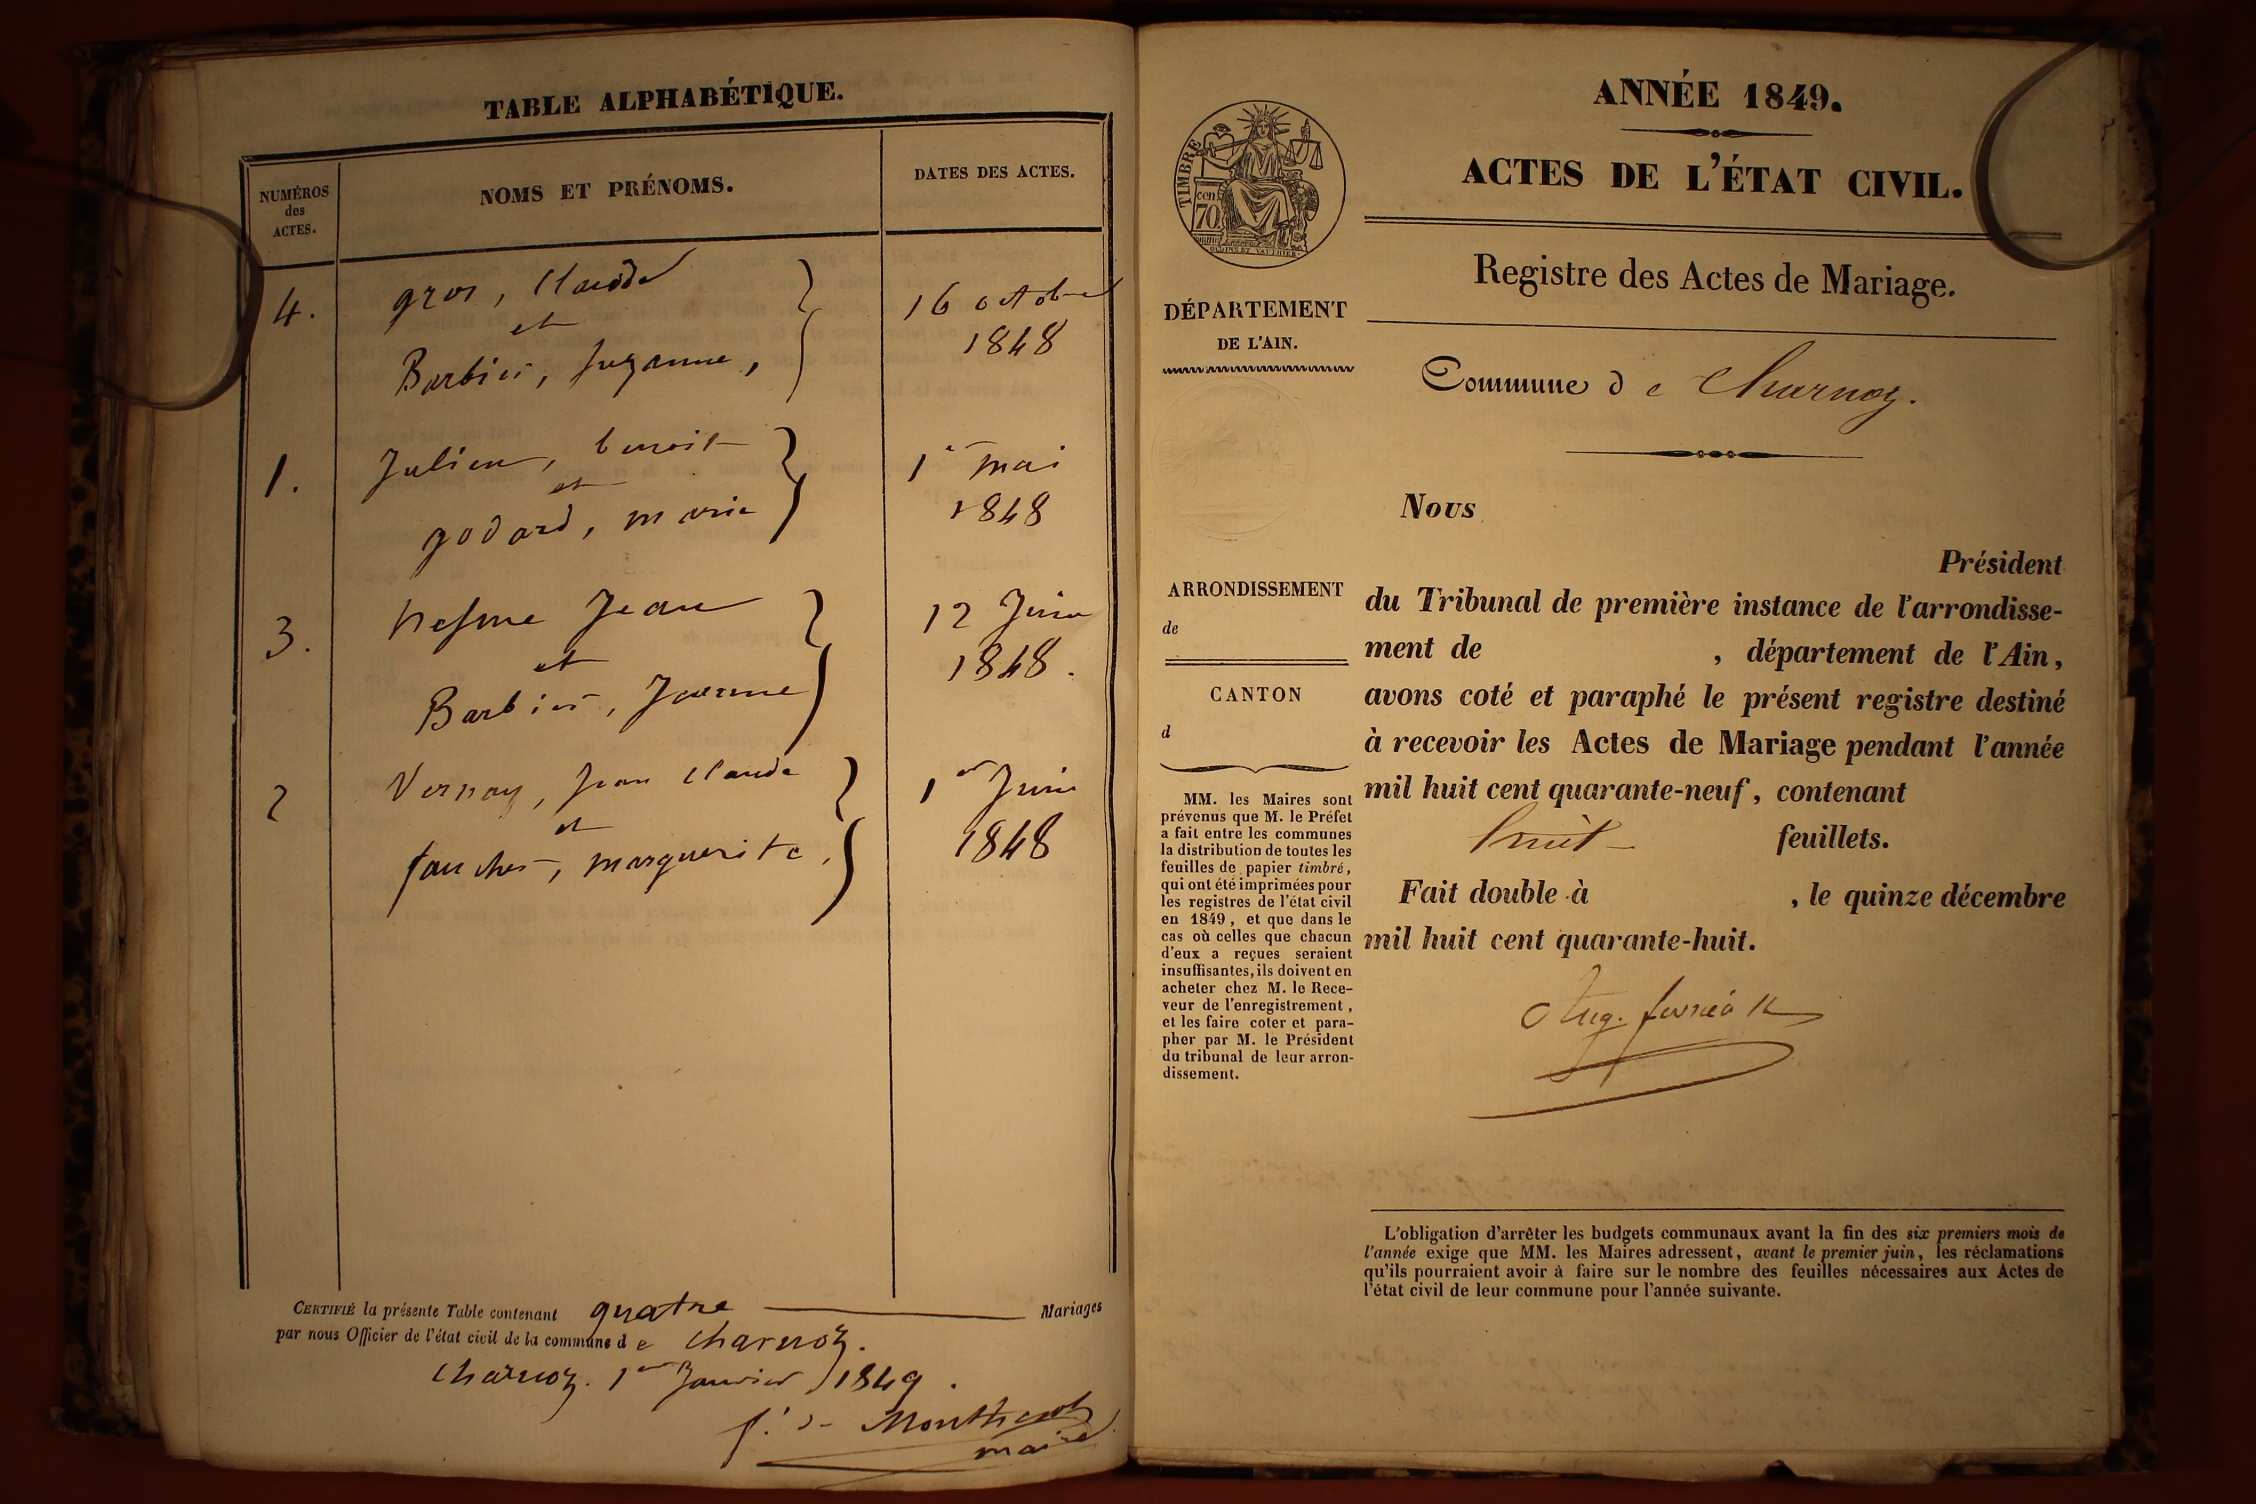 TABLE ALPHABÉTIQUE.
NUMÉROS
des
ACTES.
NOMS ET PRÉNOMS.
DATES DES ACTES.
4.
gros, Claude
et
Barbier, Suzanne,
16 octobre
1848
1.
Julien, benoit
et
godard, marie
1er mai
1848
3.
Nesme Jean
et
Barbier, Jeanne
12 Juin
1848.
2
Vernay, Jean Claude
et
faucher, marguerite,
1er Juin
1848
CERTIFIÉ la présente Table contenant quatre Mariages
par nous Officier de l'état civil de la commune de charnoz.
charnoz. 1er Janvier 1849.
maire
ANNÉE 1849.
ACTES DE L'ÉTAT CIVIL.
TIMBRE
70
cen
Registre des Actes de Mariage.
DÉPARTEMENT
DE L'AIN.
Commune de Charnoz.
Nous
Président
du Tribunal de première instance de l'arrondisse-
ment de , département de l'Ain,
avons coté et paraphé le présent registre destiné
à recevoir les Actes de Mariage pendant l'année
mil huit cent quarante-neuf, contenant
huit feuillets.
Fait double à , le quinze décembre
mil huit cent quarante-huit.
ARRONDISSEMENT
de
CANTON
d
MM. les Maires sont
prévenus que M. le Préfet
a fait entre les communes
la distribution de toutes les
feuilles de papier timbré,
qui ont été imprimées pour
les registres de l'état civil
en 1849, et que dans le
cas où celles que chacun
d'eux a reçues seraient
insuffisantes, ils doivent en
acheter chez M. le Rece-
veur de l'enregistrement,
et les faire coter et para-
pher par M. le Président
du tribunal de leur arron-
dissement.
L'obligation d'arrêter les budgets communaux avant la fin des six premiers mois de
l'année exige que MM. les Maires adressent, avant le premier juin, les réclamations
qu'ils pourraient avoir à faire sur le nombre des feuilles nécessaires aux Actes de
l'état civil de leur commune pour l'année suivante.